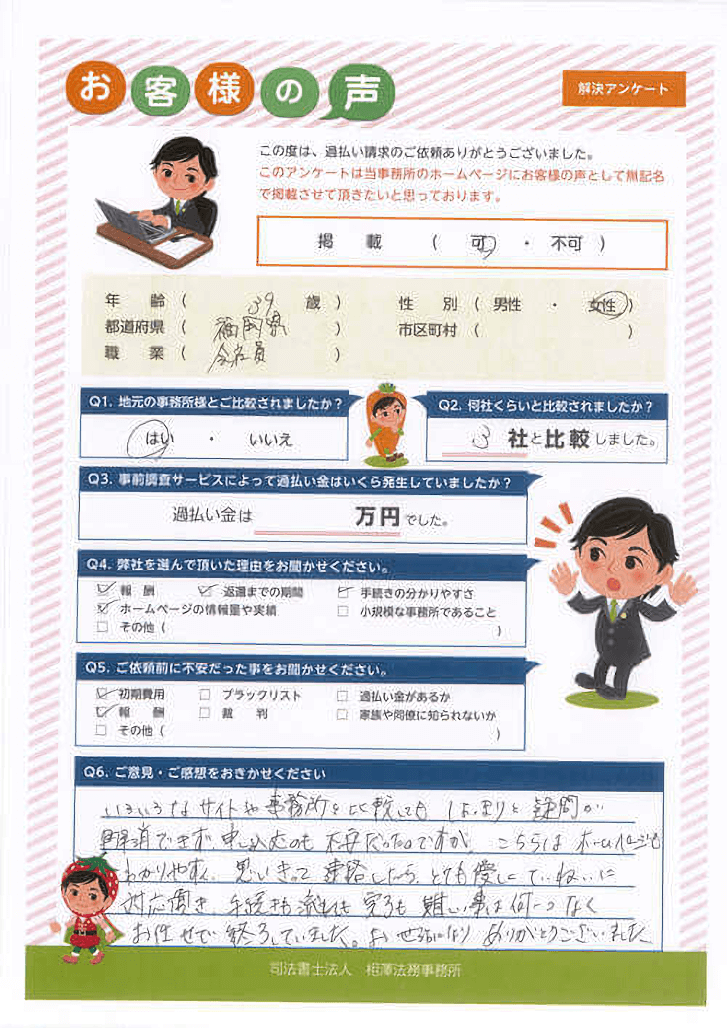 お客様の声
解決アンケート
この度は、過払い請求のご依頼ありがとうございました。
このアンケートは当事務所のホームページにお客様の声として無記名
で掲載させて頂きたいと思っております。
掲 載 ( 可 ・ 不可 )
年 齢 ( 39 歳 ) 性 別 ( 男性 ・ 女性 )
都道府県 ( 福岡県 ) 市区町村 ( )
職 業 ( 会社員 )
Q1. 地元の事務所様とご比較されましたか?
Q2. 何社くらいと比較されましたか?
はい ・ いいえ
3 社と比較しました。
Q3. 事前調査サービスによって過払い金はいくら発生していましたか?
過払い金は 万円でした。
Q4. 弊社を選んで頂いた理由をお聞かせください。
☑ 報 酬 ☑ 返還までの期間 ☑ 手続きの分かりやすさ
☑ ホームページの情報量や実績 □ 小規模な事務所であること
□ その他 ( )
Q5. ご依頼前に不安だった事をお聞かせください。
☑ 初期費用 □ ブラックリスト □ 過払い金があるか
☑ 報 酬 □ 裁 判 □ 家族や同僚に知られないか
□ その他 ( )
Q6. ご意見・ご感想をおきかせください
いろいろなサイトや事務所を比較しても はっきりと 疑問が
できず、申し込むのも 不安だったのですが、こちらは ホームページも
わかりやすく、思いきって 連絡したら、とても優しく ていねいに
対応頂き、手続きも 流れも 完了も 難しい事は何一つなく
お任せで 終了していました。お世話になり ありがとうございました
司法書士法人 相澤法務事務所